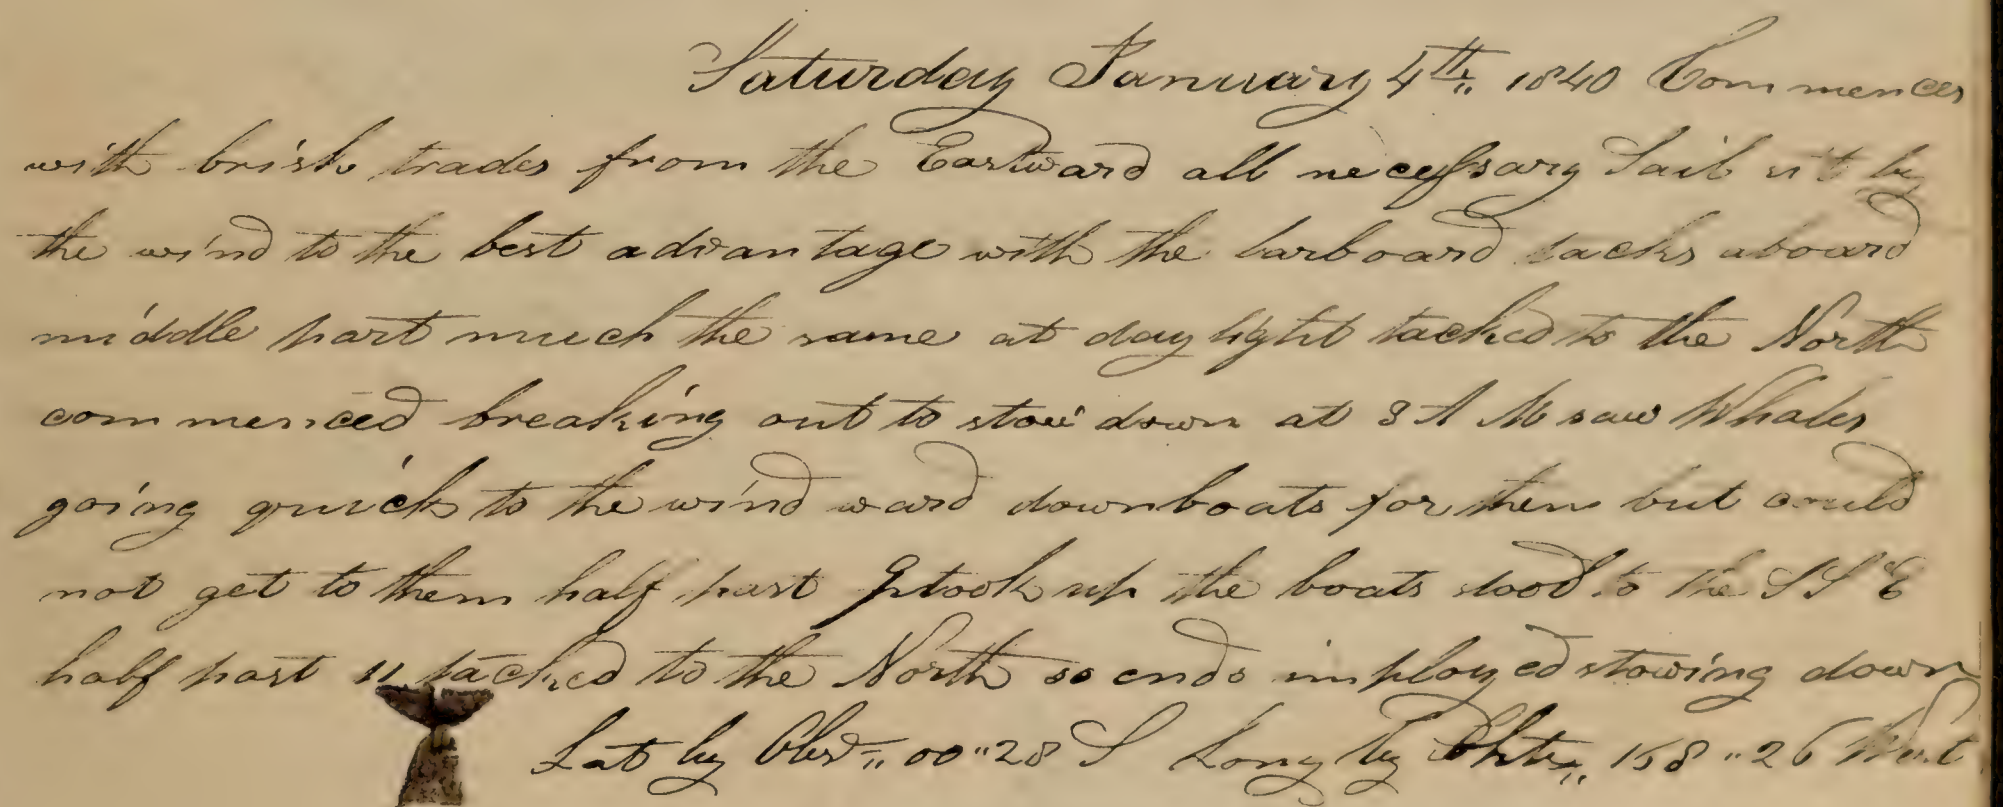 Saturday January 4th 1840 Commences
with brisk trades from the Eastward all necessary Sail set by
the wind to the best advantage with the larboard tacks aboard
middle part much the same at day light tacked to the North
commenced breaking out to stow down at 8 A M saw Whales
going quick to the wind ward down boats for them but could
not get to them half past 9 took up the boats stood to the S S E
half past 11 tacked to the North so ends imployed stowing down
Lat by Obsd 00 " 28 S Long by 158 " 26 West